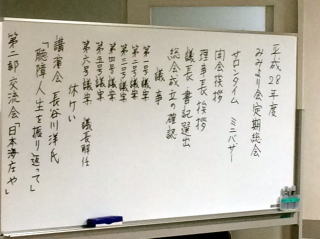 平成28年度
みみより会定期総会
サロンタイム　ミニバザー
開会挨拶
理事長挨拶
議長書記選出
総会成立の確認
議事
第一号議案
第二号議案
第三号議案
第四号議案
第五号議案
第六号議案　議長解任
休けい
講演会　長谷川洋氏
「聴障人生を振り返って」
第二部交流会「日本海庄や」